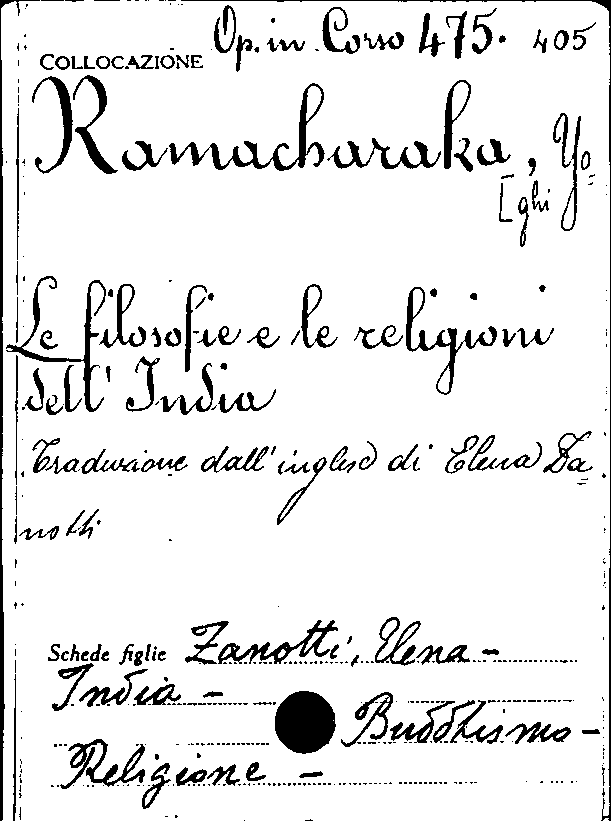 COLLOCAZIONE Op. in Corso 475. 405
Ramacharaka, Yo=
[ghi
Le filosofie e le religioni
dell' India
Traduzione dall'inglese di Elena Za=
notti
Schede figlie Zanotti, Elena -
India -
Buddhismo -
Religione -